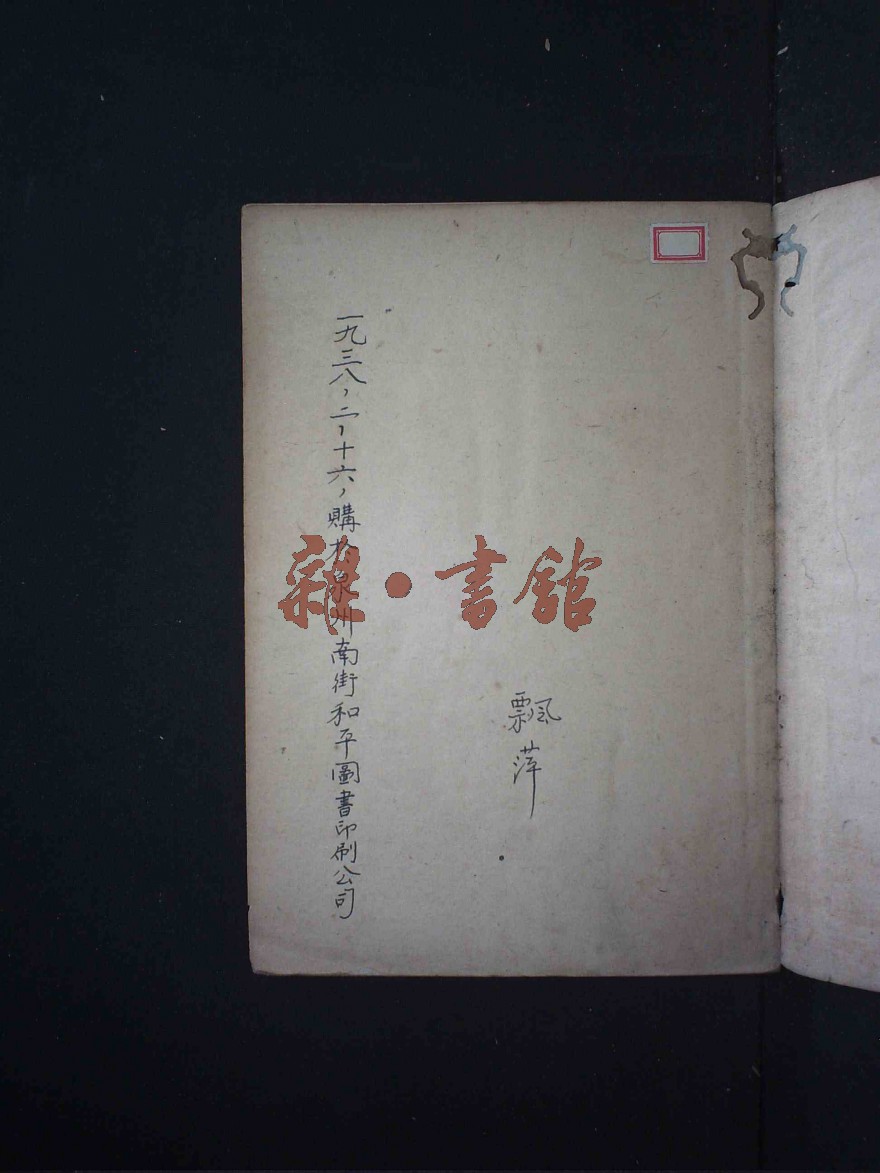 飄萍
一九三八，二，十六，購於泉州南街和平圖書印刷公司
雜·書館